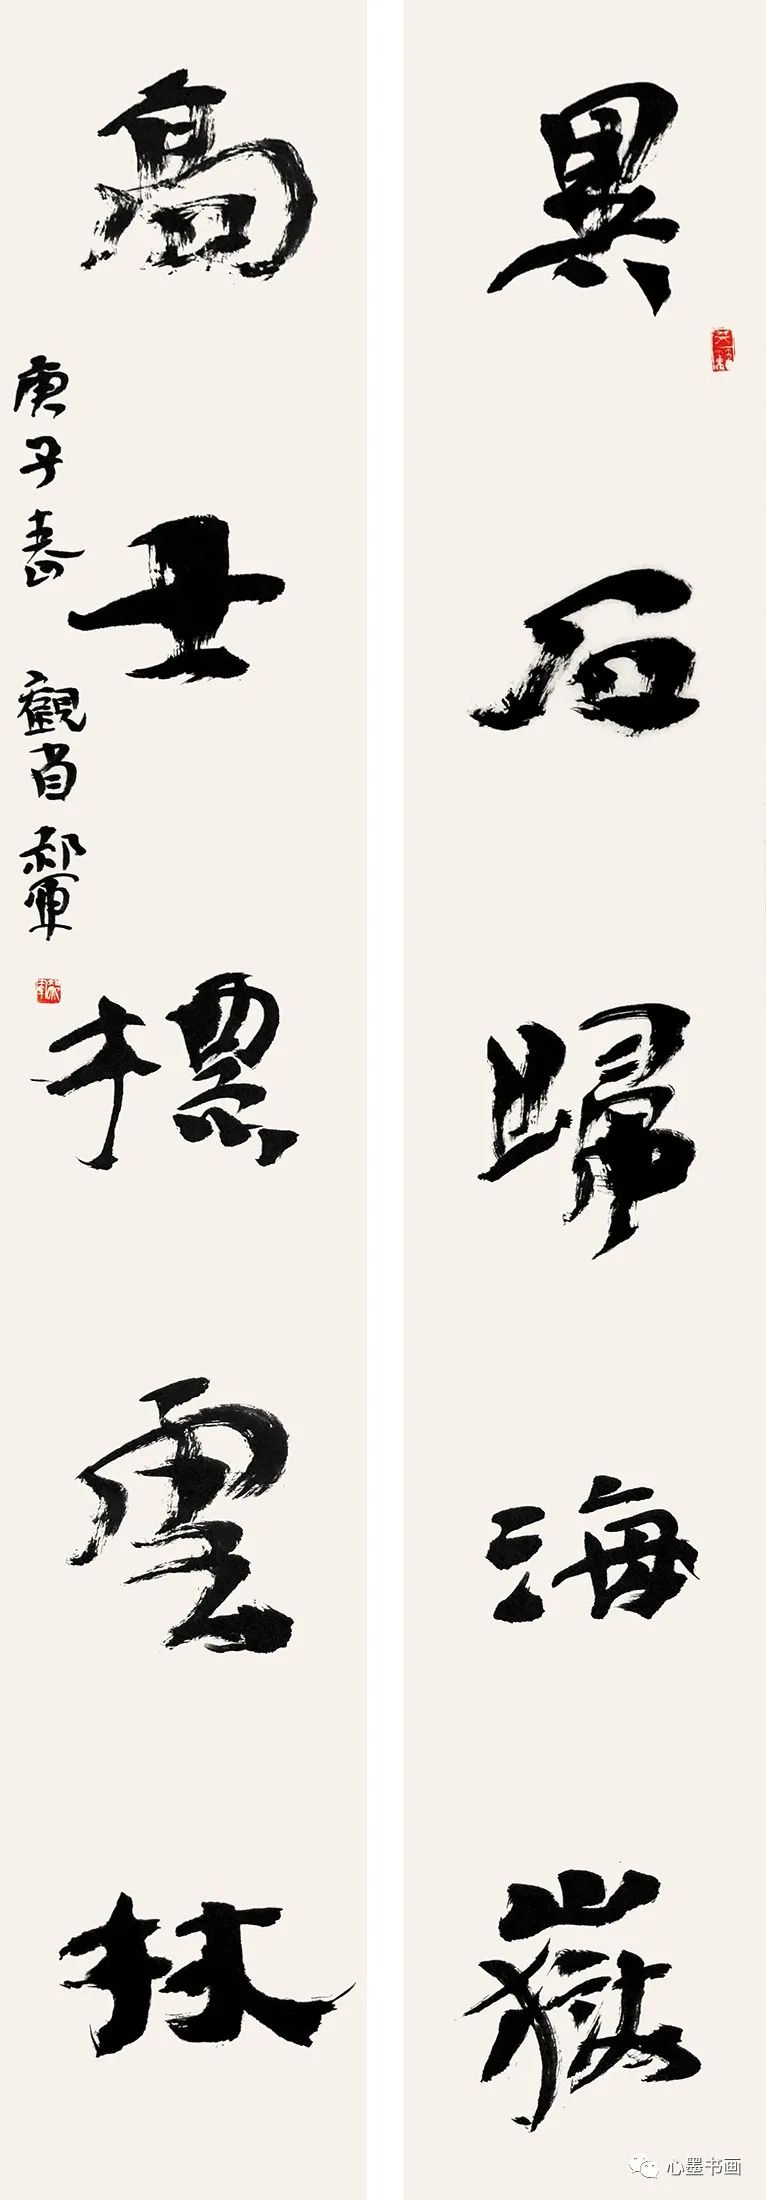 異石歸海嶽
高士標雲林
庚子春 觀省 郝軍
心墨书画